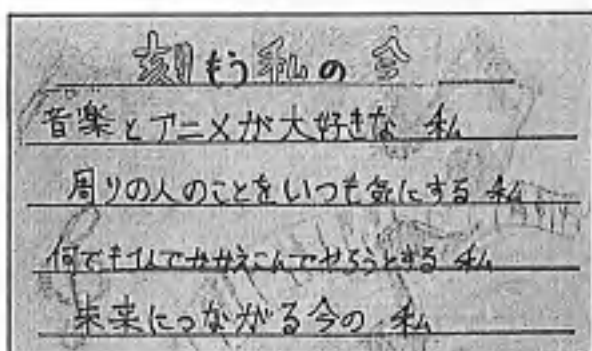 刻もう私の今
音楽とアニメが大好きな 私
周りの人のことをいつも気にする 私
何でも1人でかかえこんでやろうとする 私
未来につながる今の 私